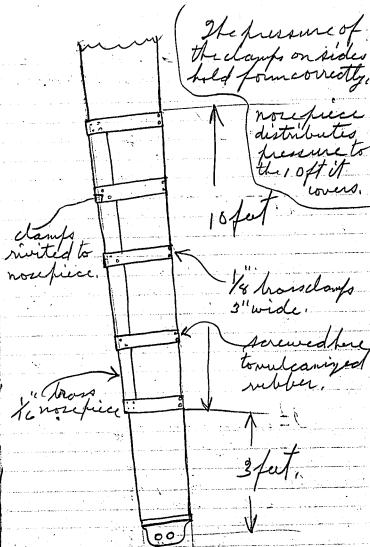 The pressure of
the clamps on sides
hold form correctly.
nosepiece
distributes
pressure to
the 10 ft it
covers.
10 feet
clamps
rivited to
nosepiece.
1/8" brass clamps
3" wide.
screwed here
to vulcanized
rubber.
1/16" brass
nosepiece
3 feet.